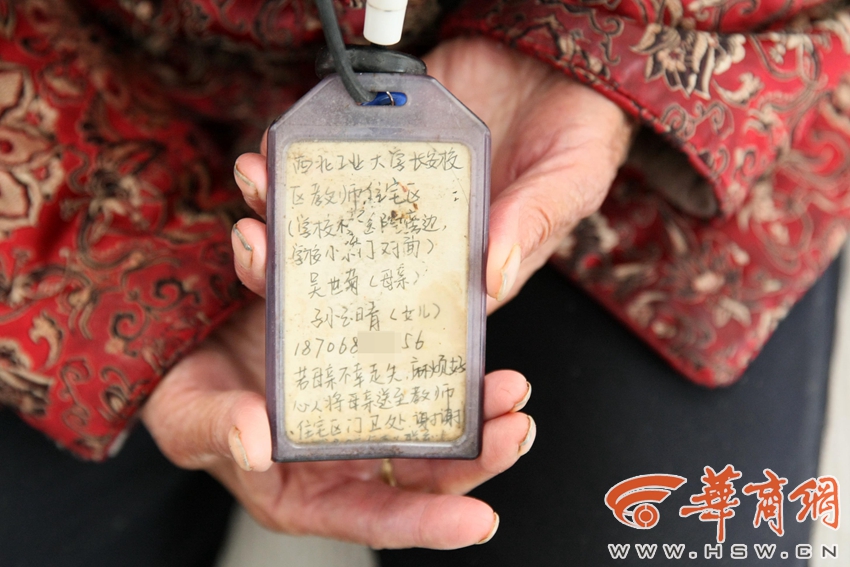 西北工业大学长安校
区教师住宅区:
(学校 医院旁边,
学校小东门对面)
吴世菊(母亲)
孙雪晴(女儿)
187068 56
若母亲不幸走失,麻烦好
心人将母亲送至教师
住宅区门卫处 谢谢
華商網
WWW.HSW.CN